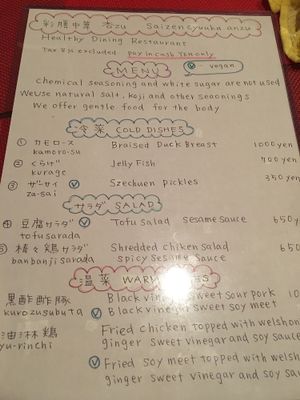 彩膳中華 杏zu Saizencyuuka anzu
Healthy Dining Restaurant
Tax 8% excluded pay in cash Yen only
MENU
Ⓥ - vegan
Chemical seasoning and white sugar are not used
We use natural salt, Koji and other seasonings
We offer gentle food for the body
冷菜 COLD DISHES
① カモロース Braised Duck Breast 1000yen
kamoro-su
② くらげ Jelly Fish 900yen
kurage
③ ザーサイ Ⓥ Szechuen Pickles 350yen
za-sai
サラダ SALAD
④ 豆腐サラダ Ⓥ Tofu Salad sesame sauce 650
tofu sarada
棒々鶏サラダ Shredded chiken salad 650
banbanji sarada Spicy Sesame Sauce
温菜 WARM
黒酢酢豚 Black vinegar sweet sour pork 10
kurozusubuta Ⓥ Black vinegar sweet soy meet
油淋鶏 Fried chicken topped with welshon
yu-rinchi ginger sweet vinegar and soy sauce
Ⓥ Fried soy meet topped with welsh
ginger sweet vinegar and soy sauce